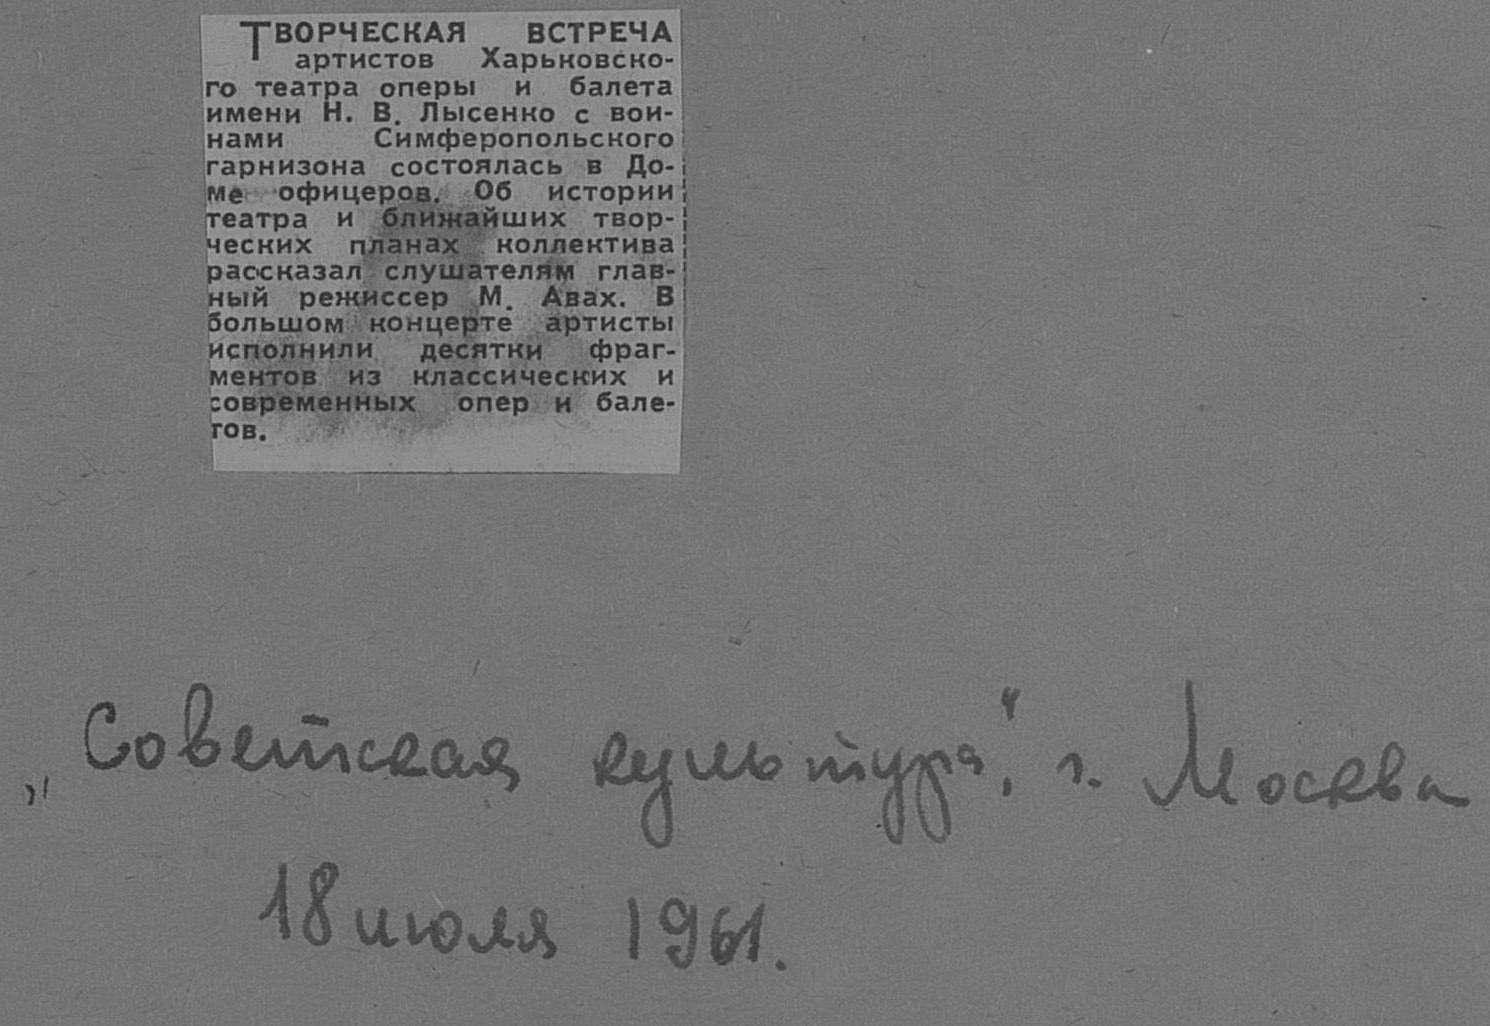 ТВОРЧЕСКАЯ ВСТРЕЧА
артистов Харьковско-
го театра оперы и балета
имени Н. В. Лысенко с вои-
нами Симферопольского
гарнизона состоялась в До-
ме офицеров. Об истории
театра и ближайших твор-
ческих планах коллектива
рассказал слушателям глав-
ный режиссер М. Авах. В
большом концерте артисты
исполнили десятки фраг-
ментов из классических и
современных опер и бале-
тов.
„Советская культура", г. Москва
18 июля 1961.